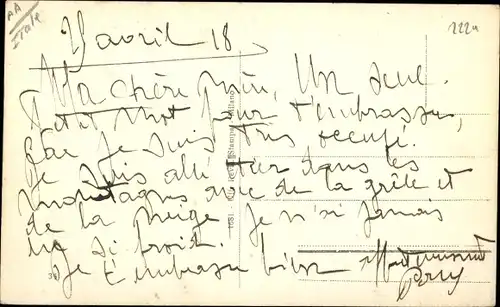 AA
Italie
222a
25 avril 18
Ma chère Un seul
Petit mot pour t'embrasser,
car je suis très occupé.
Je suis allé hier dans les
montagnes avec de la grêle et
de la neige je n'ai jamais
eu si froid.
Je t'embrasse bien